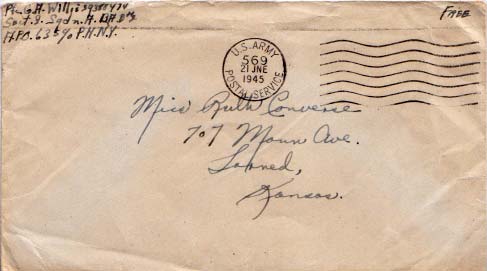 Pvt. G.H. Willis
Sqd n. H.
A.P.O. 635 % P.M. N.Y.
Free
U.S. ARMY
569
21 JNE
1945
POSTAL SERVICE
Miss Ruth Converse
707 Mann Ave.
Larned,
Kansas.